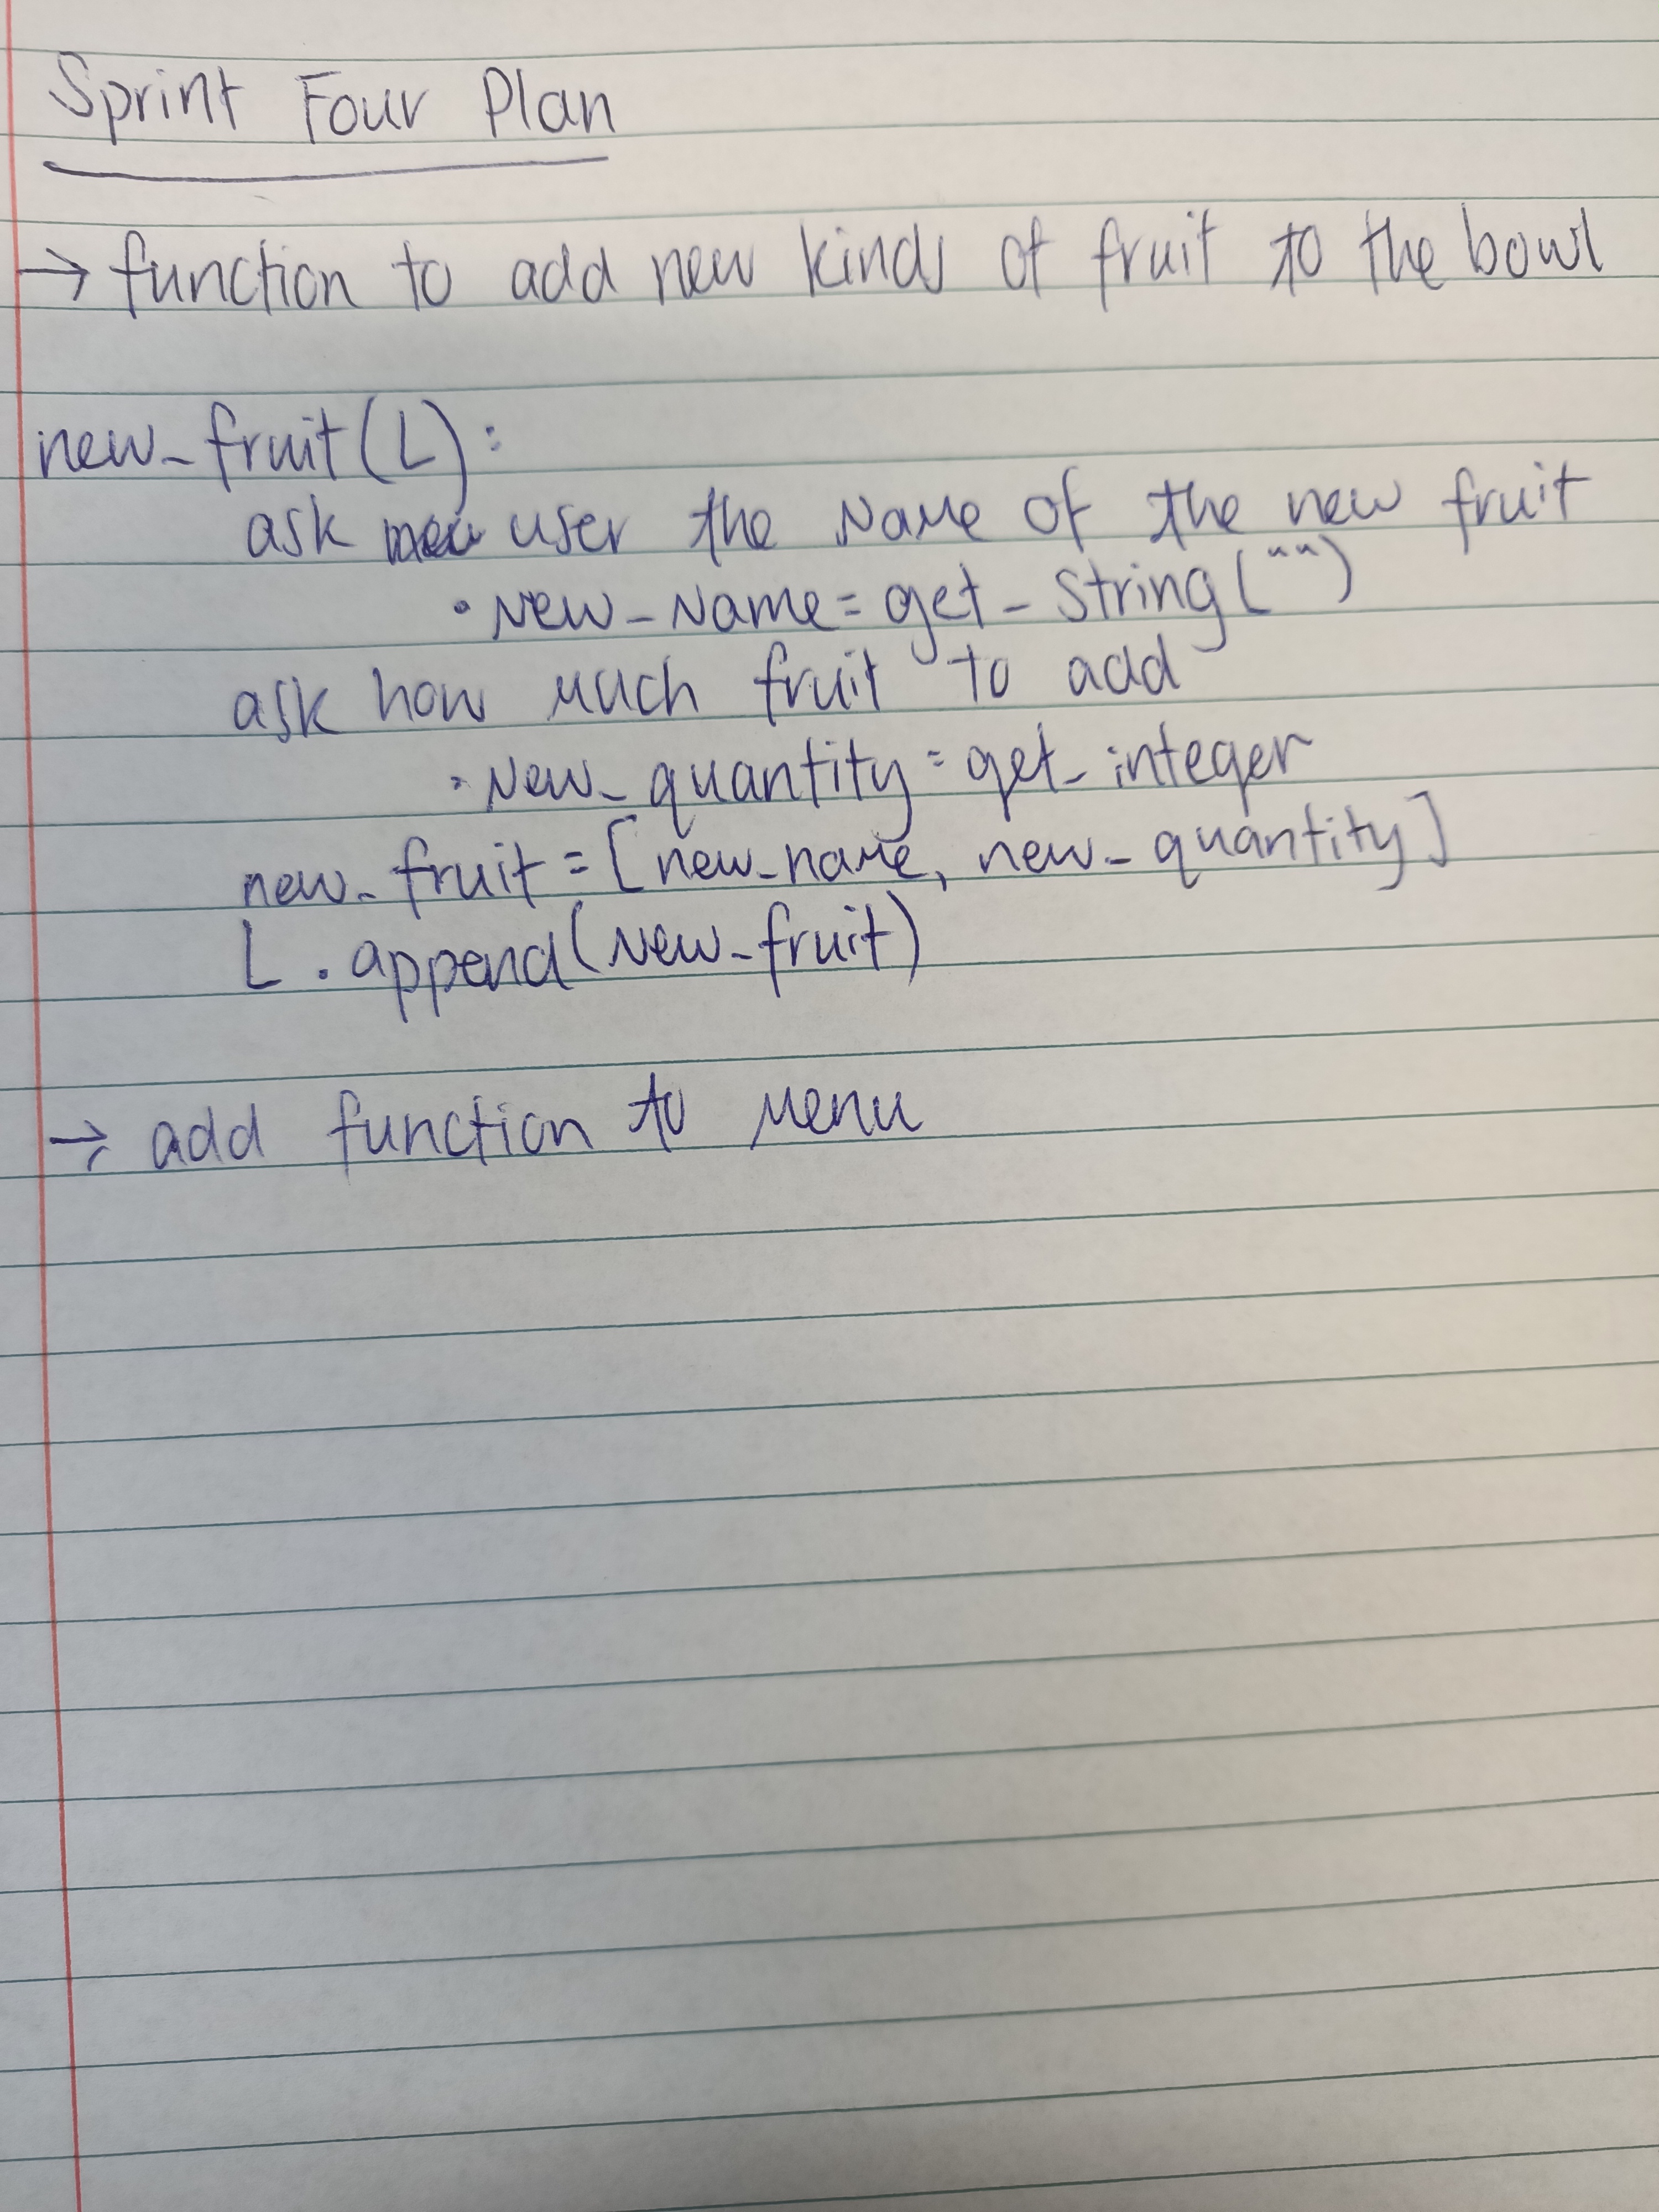 Sprint Four Plan
→ function to add new kinds of fruit to the bowl
new_fruit(L):
ask user the Name of the new fruit
• New_Name = get_string("")
ask how much fruit to add
• New_quantity = get_integer
new_fruit = [new_name, new_quantity]
L.append(New_fruit)
→ add function to Menu